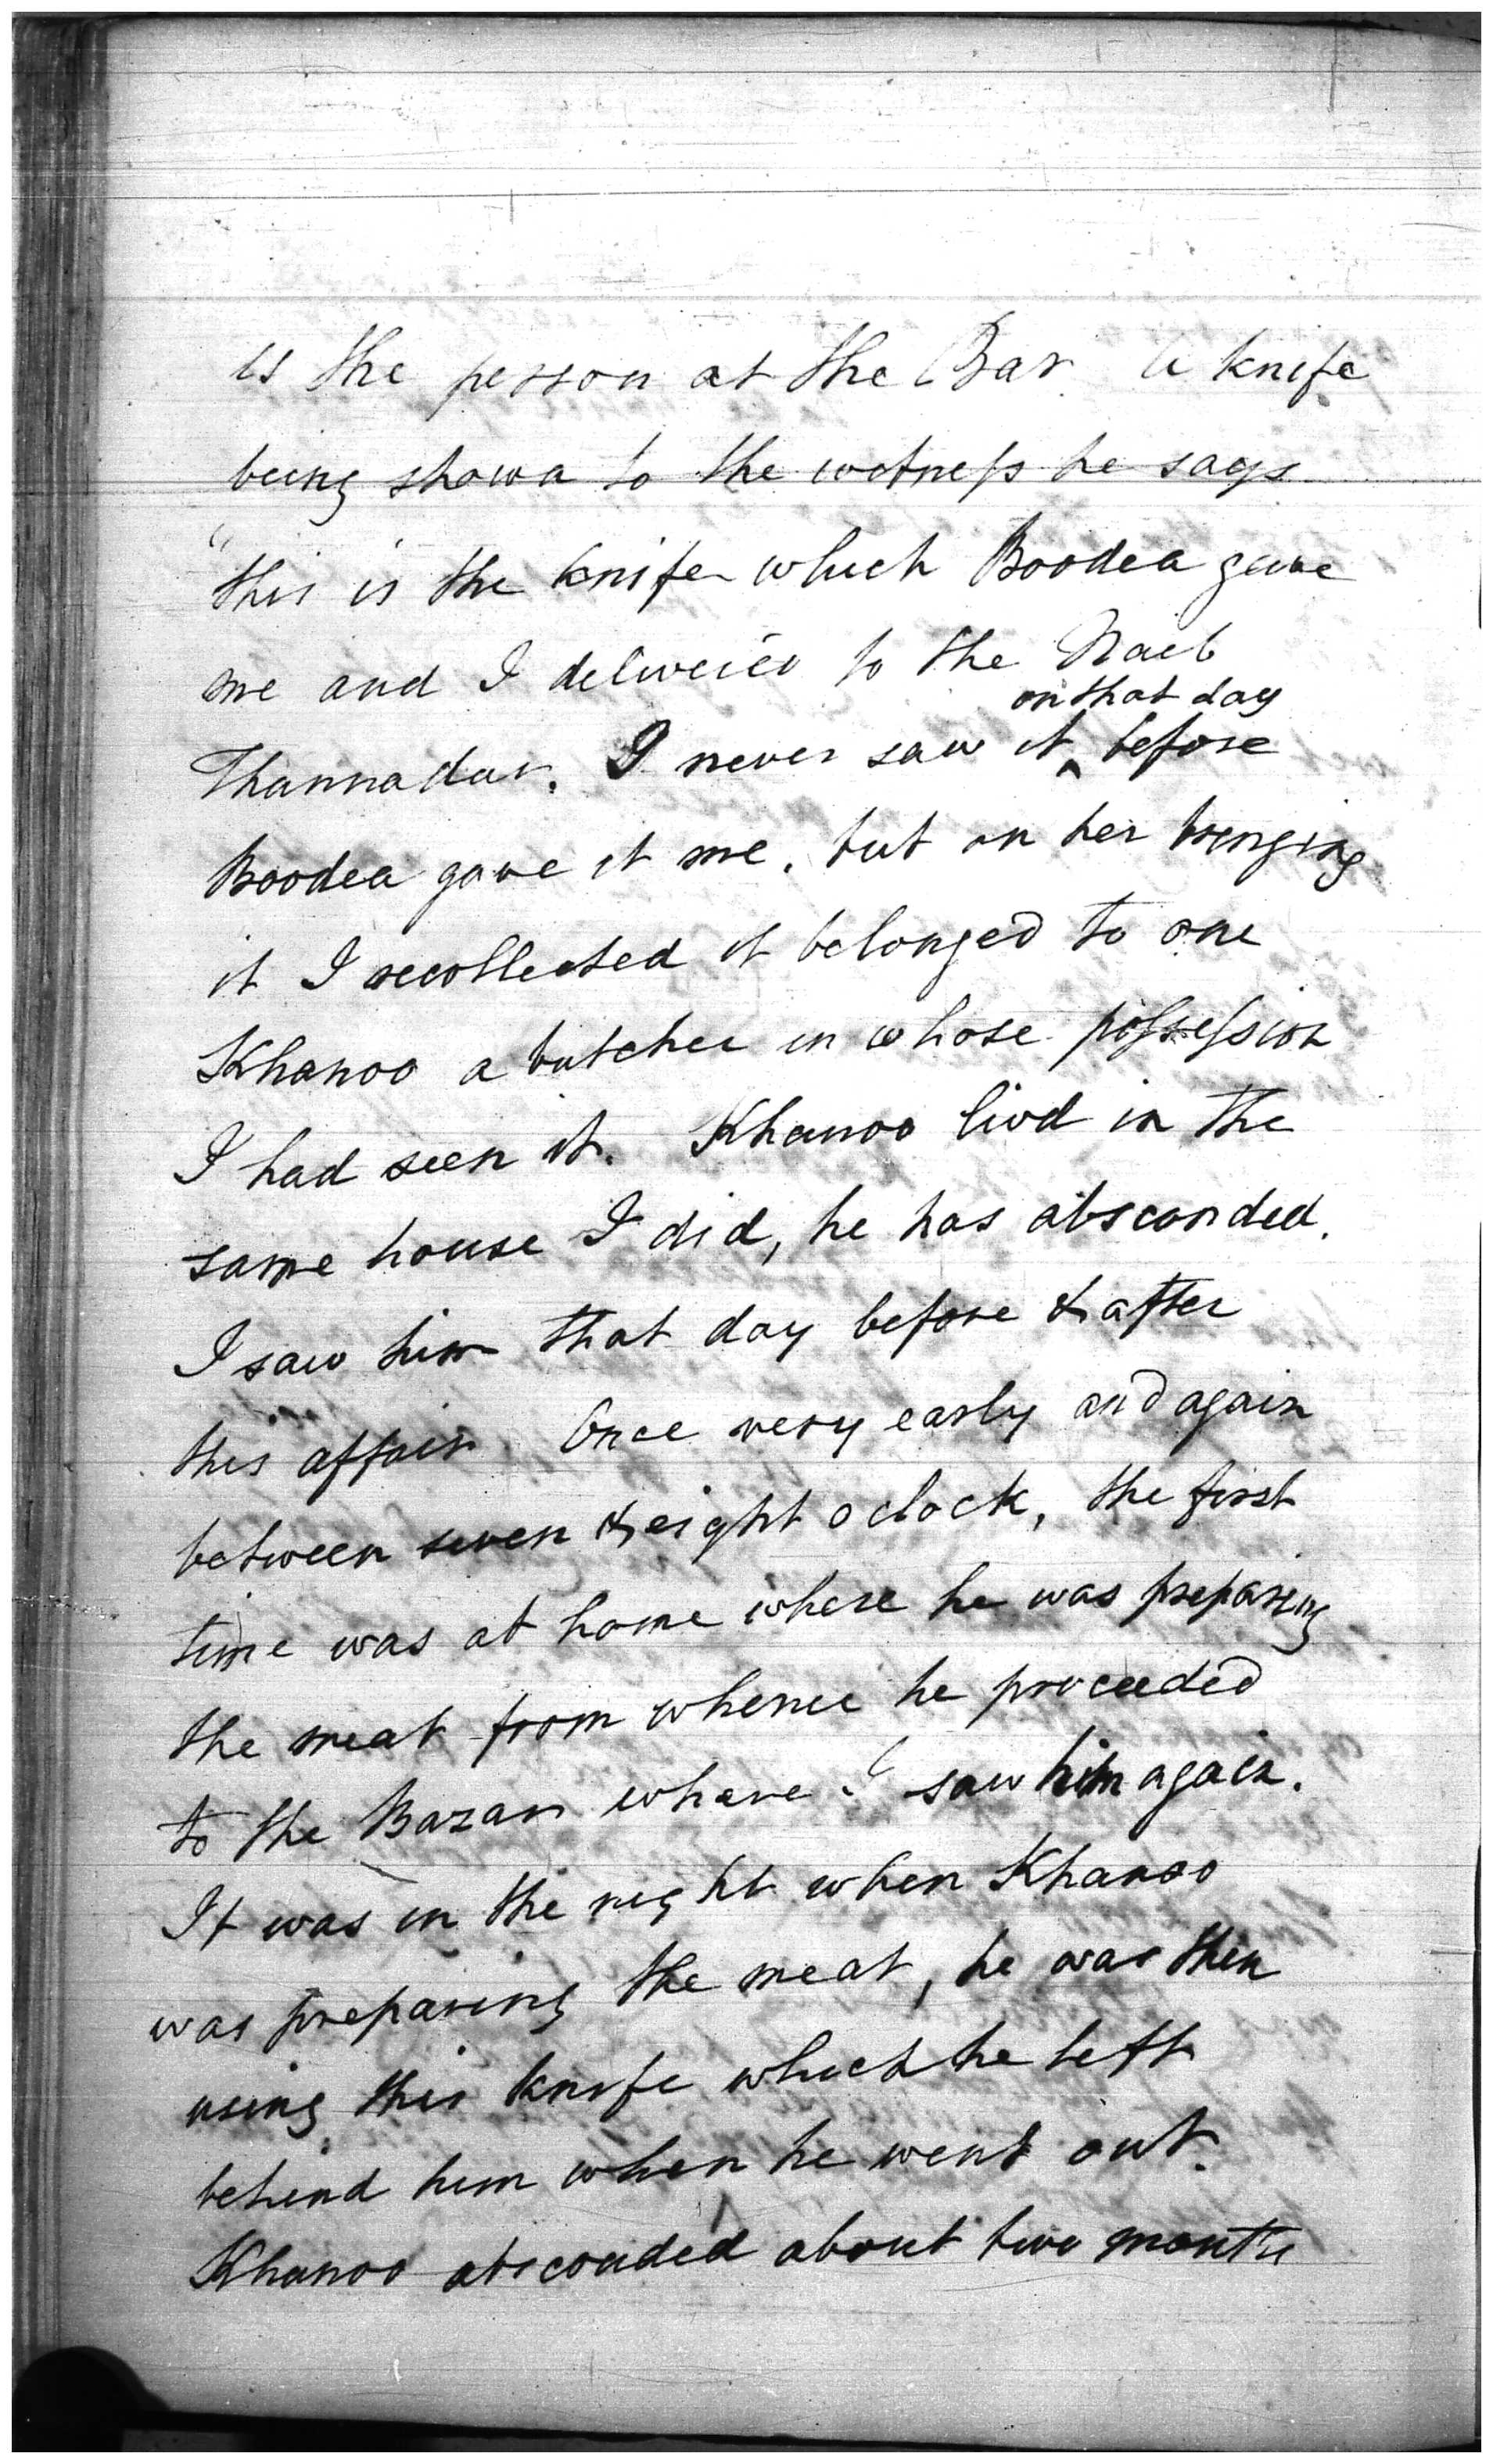 is the person at the Bar. A knife
being shown to the witness he says
"this is the knife which Boodea gave
me and I delivered to the Naib
on that day
Thannadar. I never saw it ^ before
Boodea gave it me, but on her bringing
it I recollected it belonged to one
Khanoo a butcher in whose possession
I had seen it. Khanoo livd in the
same house I did, he has absconded.
I saw him that day before & after
this affair. Once very early and again
between seven & eight o clock, the first
time was at home where he was preparing
the meat from whence he proceeded
to the Bazar where I saw him again.
It was in the night when Khanoo
was preparing the meat, he was then
using this knife which he left
behind him when he went out.
Khanoo absconded about two months